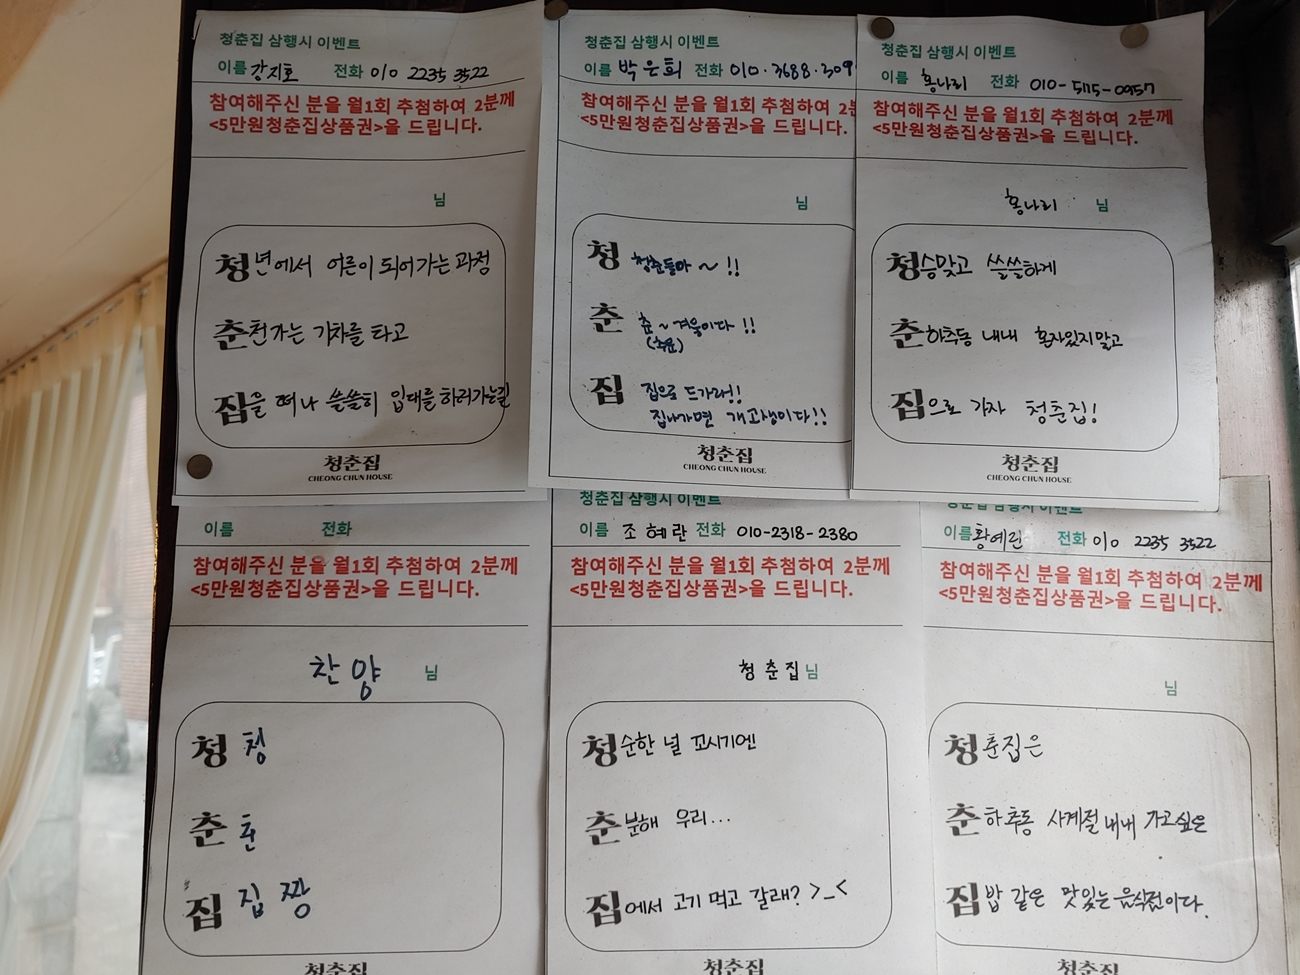 청춘집 삼행시 이벤트
이름 강지호 전화 010 2235 3522
참여해주신 분을 월1회 추첨하여 2분께
<5만원청춘집상품권>을 드립니다.
님
청년에서 어른이 되어가는 과정
춘천가는 기차를 타고
집을 떠나 쓸쓸히 입대를 하러가는길
청춘집
CHEONG CHUN HOUSE
청춘집 삼행시 이벤트
이름 박은희 전화 010.3688.309
참여해주신 분을 월1회 추첨하여 2분
<5만원청춘집상품권>을 드립니다.
님
청 청춘들아 ~ !!
춘 춘 ~ 겨울이다 !!
(추운)
집 집으로 드가라!!
집나가면 개고생이다!!
청춘집
CHEONG CHUN HOUSE
청춘집 삼행시 이벤트
이름 홍나리 전화 010-5115-0957
참여해주신 분을 월1회 추첨하여 2분께
<5만원청춘집상품권>을 드립니다.
홍나리 님
청승맞고 쓸쓸하게
춘하추동 내내 혼자있지말고
집으로 가자 청춘집!
청춘집
CHEONG CHUN HOUSE
이름 전화
참여해주신 분을 월1회 추첨하여 2분께
<5만원청춘집상품권>을 드립니다.
찬양 님
청 청
춘 춘
집 집 짱
청춘집
청춘집 삼행시 이벤트
이름 조혜란 전화 010-2318-2380
참여해주신 분을 월1회 추첨하여 2분께
<5만원청춘집상품권>을 드립니다.
청춘집 님
청순한 널 꼬시기엔
춘분해 우리...
집에서 고기 먹고 갈래? >_<
청춘집
청춘집 삼행시 이벤트
이름 황예린 전화 010 2235 3522
참여해주신 분을 월1회 추첨하여 2분께
<5만원청춘집상품권>을 드립니다.
님
청춘집은
춘하추동 사계절 내내 가고싶은
집밥 같은 맛있는 음식점이다.
청춘집